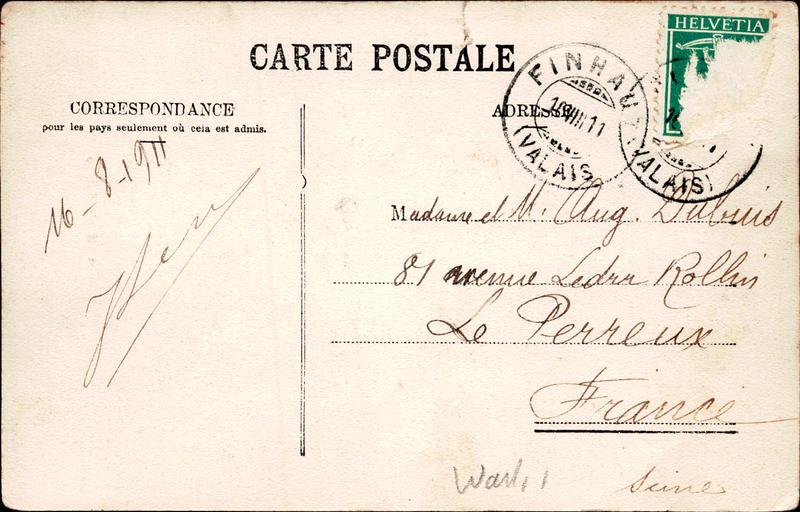 HELVETIA
CARTE POSTALE
FINHAUT
16.VIII.11
(VALAIS)
(VALAIS)
CORRESPONDANCE
pour les pays seulement où cela est admis.
ADRESSE
16-8-1911
Madame et M. Aug. Dubuis
81 avenue Ledru Rollin
Le Perreux
France
Seine